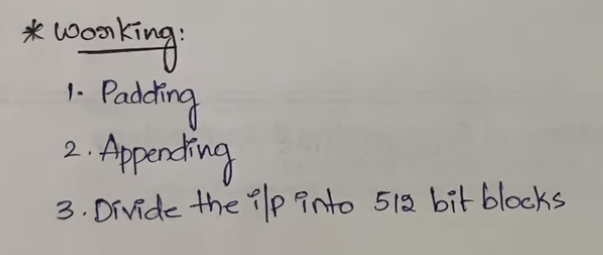 * Working:
1. Padding
2. Appending
3. Divide the i/p into 512 bit blocks